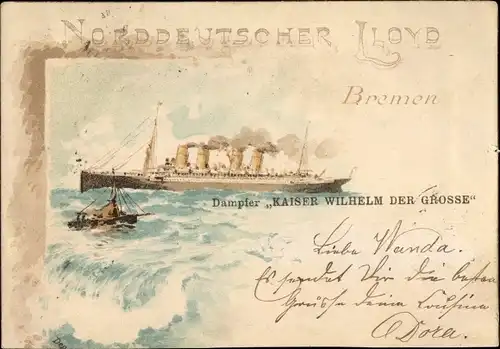 NORDDEUTSCHER LLOYD
Bremen
Dampfer „KAISER WILHELM DER GROSSE“
Liebe Wanda.
Es sendet Dir die besten
Grüsse deine Cousine
Dora.